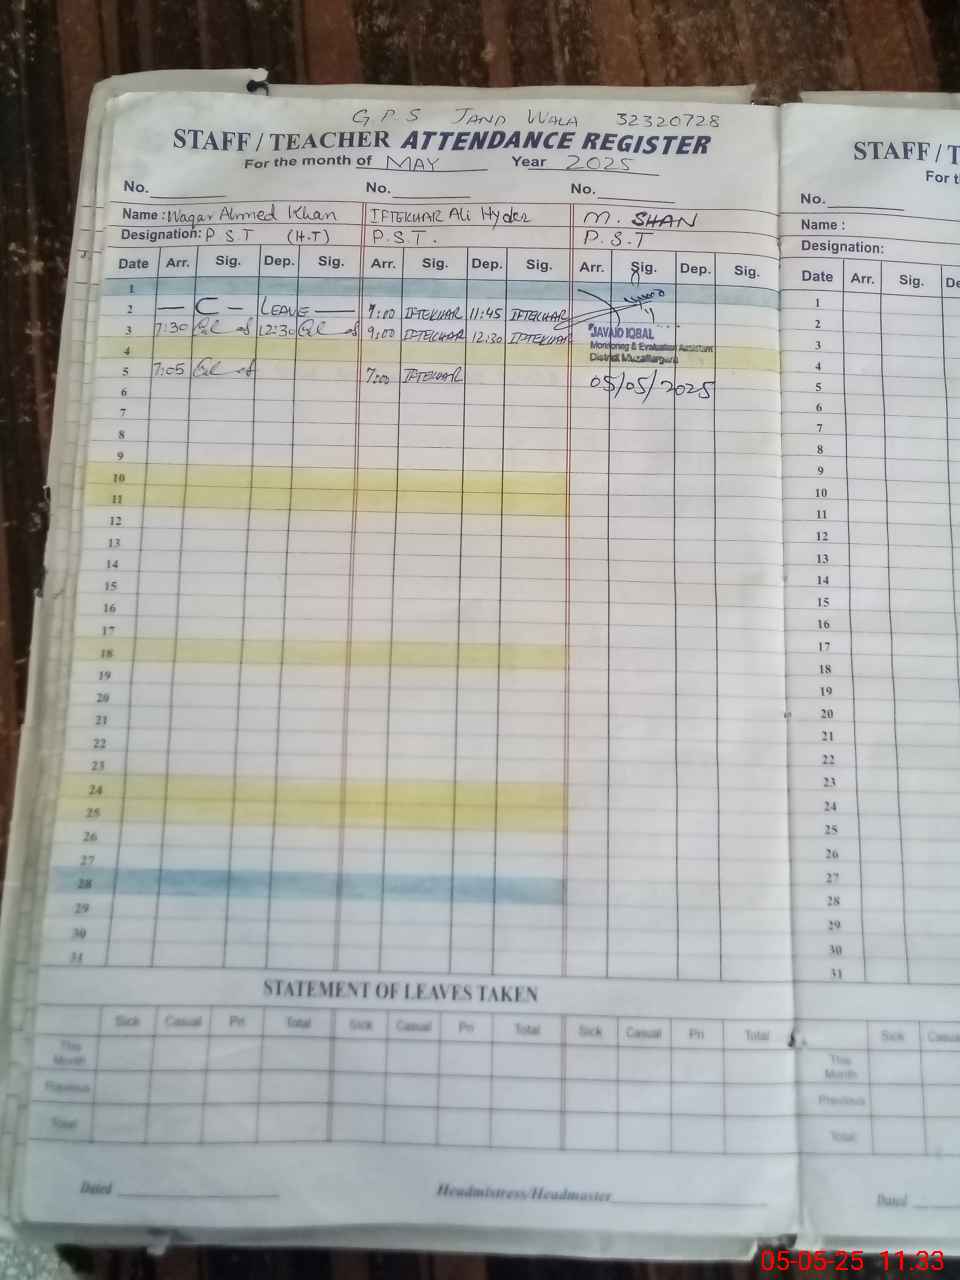 G.P.S JAND WALA 32320728
STAFF / TEACHER ATTENDANCE REGISTER
For the month of MAY Year 2025
No. No. No.
Name : Waqar Ahmed Khan IFTEKHAR Ali Hyder M. SHAN
Designation: P S T (H.T) P.S.T. P.S.T
Date Arr. Sig. Dep. Sig. Arr. Sig. Dep. Sig. Arr. Sig. Dep. Sig.
1
2 — C — LEAVE — 7:00 IFTEKHAR 11:45 IFTEKHAR
3 7:30 12:30 9:00 IFTEKHAR 12:30 IFTEKHAR
JAVAID IQBAL
Monitoring & Evaluation Assistant
4
District Muzaffargarh
5 7:05 7:00 IFTEKHAR
05/05/2025
6
7
8
9
10
11
12
13
14
15
16
17
18
19
20
21
22
23
24
25
26
27
28
29
30
31
STATEMENT OF LEAVES TAKEN
Sick Casual Pri Total Sick Casual Pri Total Sick Casual Pri Total
This Month
Previous
Total
Dated Headmistress/Headmaster
STAFF / T
For th
No.
Name :
Designation:
Date Arr. Sig. De
1
2
3
4
5
6
7
8
9
10
11
12
13
14
15
16
17
18
19
20
21
22
23
24
25
26
27
28
29
30
31
Sick Casua
This Month
Previous
Total
Dated
05-05-25 11:33